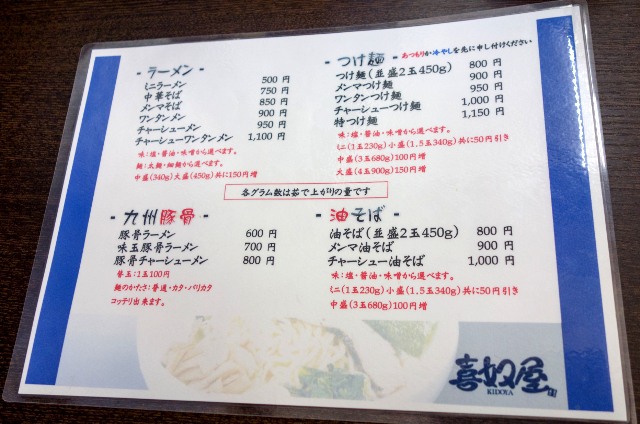 - ラーメン -
ミニラーメン 500 円
中華そば 750 円
メンマそば 850 円
ワンタンメン 900 円
チャーシューメン 950 円
チャーシューワンタンメン 1,100 円
味：塩・醤油・味噌から選べます。
麺：太麺・細麺から選べます。
中盛(340g)大盛(450g)共に150円増
- つけ麺 - ★あつもりか冷やしを先に申し付けください
つけ麺(並盛2玉450g) 800 円
メンマつけ麺 900 円
ワンタンつけ麺 950 円
チャーシューつけ麺 1,000 円
特つけ麺 1,150 円
味：塩・醤油・味噌から選べます。
ミニ(1玉230g)小盛(1.5玉340g)共に50円引き
中盛(3玉680g)100円増
大盛(4玉900g)150円増
各グラム数は茹で上がりの量です
- 九州豚骨 -
豚骨ラーメン 600 円
味玉豚骨ラーメン 700 円
豚骨チャーシューメン 800 円
替玉：1玉100円
麺のかたさ：普通・カタ・バリカタ
コッテリ出来ます。
- 油そば -
油そば(並盛2玉450g) 800 円
メンマ油そば 900 円
チャーシュー油そば 1,000 円
味：塩・醤油・味噌から選べます。
ミニ(1玉230g)小盛(1.5玉340g)共に50円引き
中盛(3玉680g)100円増
喜奴屋
KIDOYA